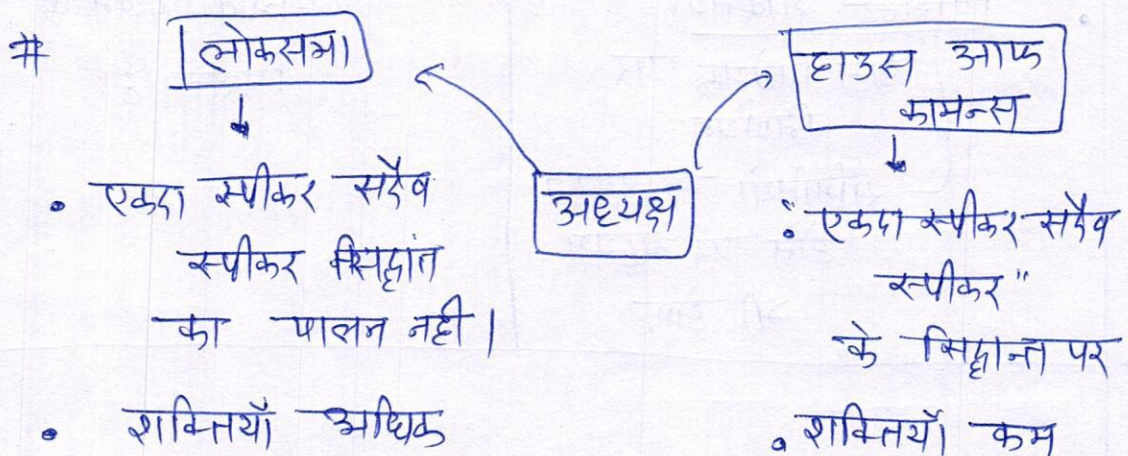 # लोकसभा
अध्यक्ष
हाउस आफ
कामन्स
• एकदा स्पीकर सदैव
स्पीकर सिद्धांत
का पालन नही।
• शक्तियाँ अधिक
"एकदा स्पीकर सदैव
स्पीकर"
के सिद्धान्त पर
• शक्तियाँ कम